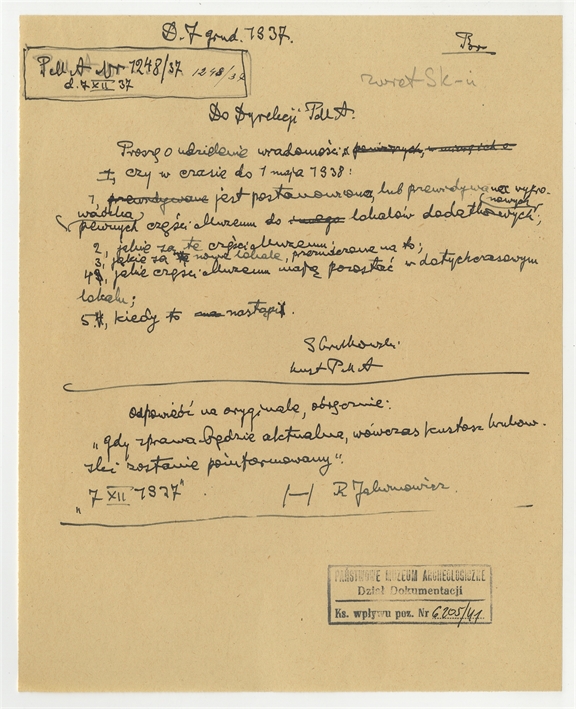 D. 7 grud. 1937.
Br
PMA Nr 1248/37 1248/37
d. 7 XII 37
zwrot Sk-u
Do Dyrekcji PMA.
Proszę o udzielenie wiadomości
czy w czasie do 1 maja 1938:
1, przewidywane jest postanowione, lub przewidywana wypro-
wadzka nowych
pewnych części Muzeum do lokalów dodatkowych;
2, jakie są te części Muzeum;
3, jakie są nowe lokale, przeznaczone na to;
4, jakie części Muzeum mają pozostać w dotychczasowym
lokalu;
5, kiedy to nastąpi.
kust PMA
Odpowiedź na oryginale, obręcznie:
„gdy sprawa będzie aktualna, wówczas kustosz
zostanie poinformowany".
„7 XII 1937"
(—) R Jakimowicz.
PAŃSTWOWE MUZEUM ARCHEOLOGICZNE
Dział Dokumentacji
Ks. wpływu poz. Nr 6205/41